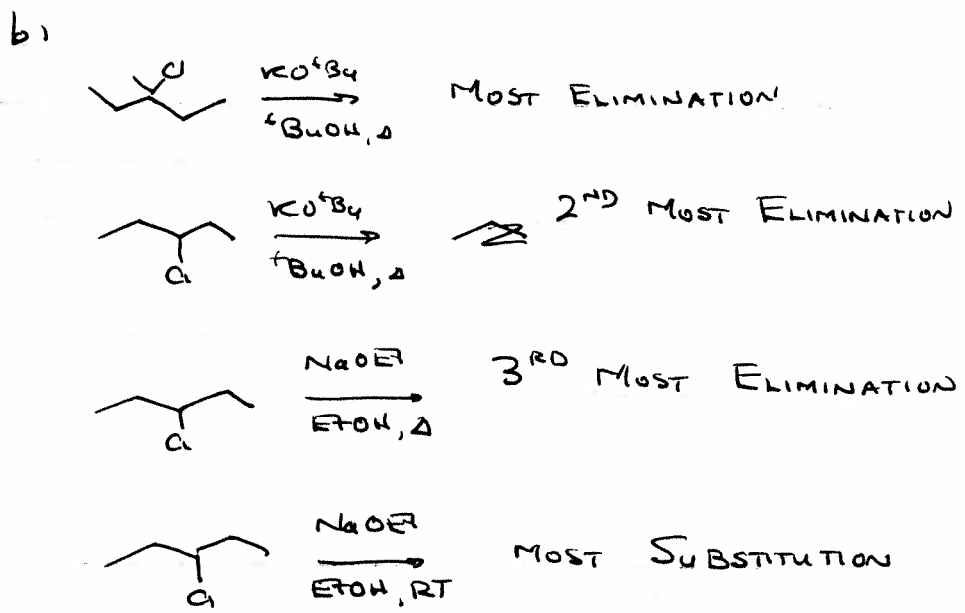 b)
Cl KOᵗBu MOST ELIMINATION
ᵗBuOH, Δ
KOᵗBu 2ND MOST ELIMINATION
Cl ᵗBuOH, Δ
NaOEt 3RD MOST ELIMINATION
Cl EtOH, Δ
NaOEt MOST SUBSTITUTION
Cl EtOH, RT